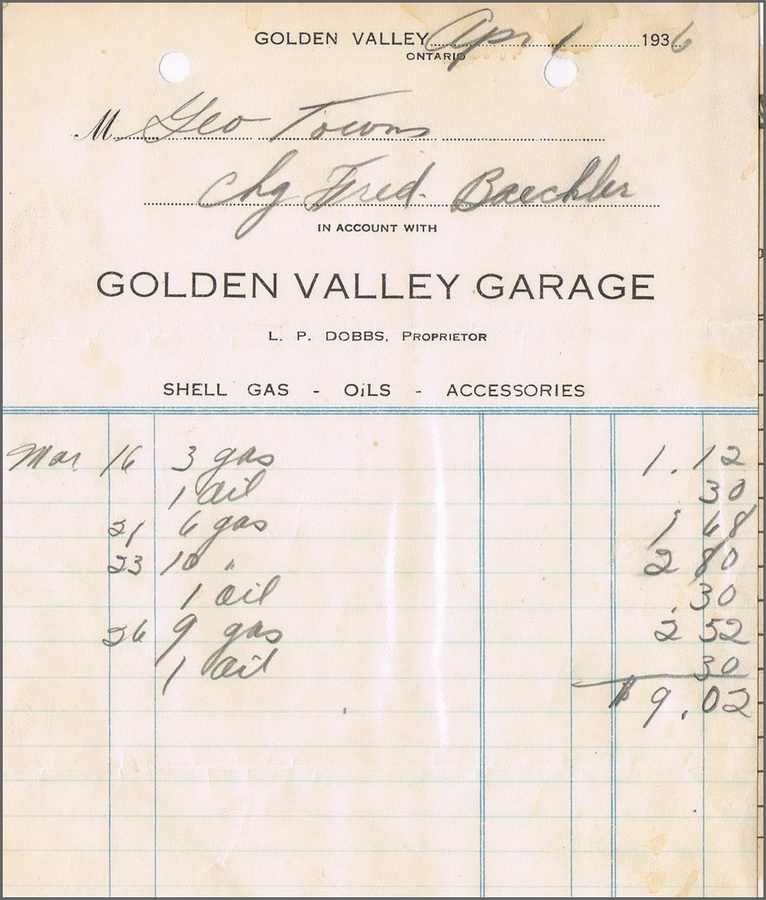 GOLDEN VALLEY Apr 1 1936
ONTARIO
M Geo Towns
Chg Fred. Baechler
IN ACCOUNT WITH
GOLDEN VALLEY GARAGE
L. P. DOBBS, PROPRIETOR
SHELL GAS - OILS - ACCESSORIES
Mar 16 3 gas 1.12
1 oil 30
21 6 gas 1 68
23 10 " 2 80
1 oil .30
26 9 gas 2 52
1 oil 30
$9.02